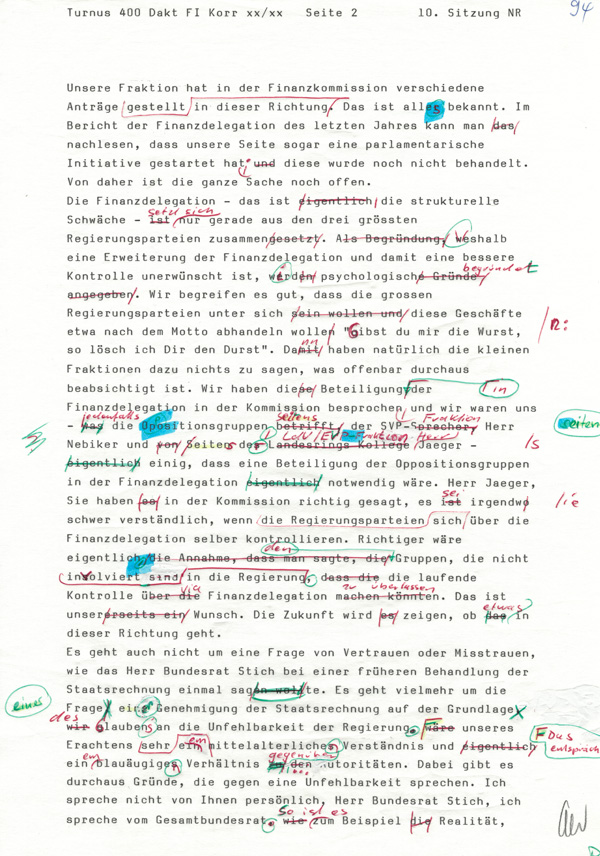 Turnus 400 Dakt FI Korr xx/xx Seite 2 10. Sitzung NR 94
Unsere Fraktion hat in der Finanzkommission verschiedene
Anträge gestellt in dieser Richtung. Das ist alles bekannt. Im
Bericht der Finanzdelegation des letzten Jahres kann man das
nachlesen, dass unsere Seite sogar eine parlamentarische
Initiative gestartet hat; und diese wurde noch nicht behandelt.
Von daher ist die ganze Sache noch offen.
Die Finanzdelegation - das ist eigentlich die strukturelle
setzt sich
Schwäche - ist nur gerade aus den drei grössten
Regierungsparteien zusammengesetzt. Als Begründung, weshalb
eine Erweiterung der Finanzdelegation und damit eine bessere
begründet
Kontrolle unerwünscht ist, werden psychologisch Gründe
angegeben. Wir begreifen es gut, dass die grossen
Regierungsparteien unter sich sein wollen und diese Geschäfte
etwa nach dem Motto abhandeln wollen "Gibst du mir die Wurst,
nn
so lösch ich Dir den Durst". Damit haben natürlich die kleinen
Fraktionen dazu nichts zu sagen, was offenbar durchaus
beabsichtigt ist. Wir haben diese Beteiligung der in
Finanzdelegation in der Kommission besprochen und wir waren uns
jedenfalls seitens Fraktion
- was die Oppositionsgruppen betrifft, der SVP-Sprecher, Herr seiten
LdU/EVP-Fraktion Herr
Nebiker und von Seiten des Landesrings Kollege Jaeger - /s
eigentlich einig, dass eine Beteiligung der Oppositionsgruppen
in der Finanzdelegation eigentlich notwendig wäre. Herr Jaeger,
sei
Sie haben es in der Kommission richtig gesagt, es ist irgendwo /ie
schwer verständlich, wenn die Regierungsparteien sich über die
Finanzdelegation selber kontrollieren. Richtiger wäre
den
eigentlich die Annahme, dass man sagte, die Gruppen, die nicht
involviert sind in die Regierung, dass die die laufende
via zu überlassen
Kontrolle über die Finanzdelegation machen könnten. Das ist
etwas
unsererseits ein Wunsch. Die Zukunft wird es zeigen, ob das in
dieser Richtung geht.
Es geht auch nicht um eine Frage von Vertrauen oder Misstrauen,
wie das Herr Bundesrat Stich bei einer früheren Behandlung der
Staatsrechnung einmal sagen wollte. Es geht vielmehr um die
eines Frage einer Genehmigung der Staatsrechnung auf der Grundlage
des
wir Glaubens an die Unfehlbarkeit der Regierung. wäre unseres
em Das entspräch
Erachtens sehr ein mittelalterliches Verständnis und eigentlich
em gegenüber
ein blauäugiges Verhältnis zu den Autoritäten. Dabei gibt es
durchaus Gründe, die gegen eine Unfehlbarkeit sprechen. Ich
spreche nicht von Ihnen persönlich, Herr Bundesrat Stich, ich
So ist es
spreche vom Gesamtbundesrat. wie zum Beispiel die Realität,